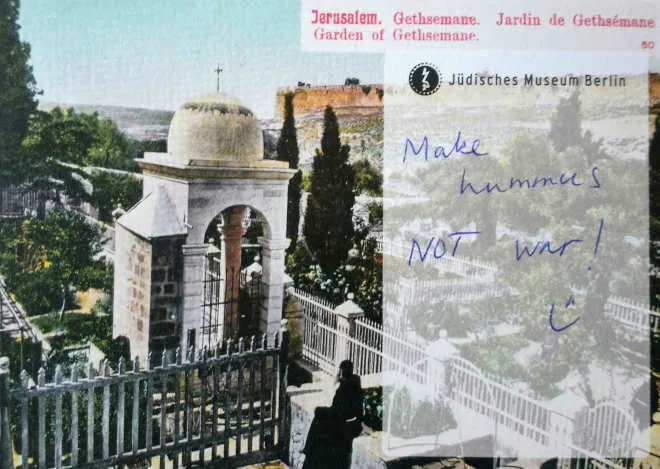 Jerusalem. Gethsemane. Jardin de Gethsémane
Garden of Gethsemane.
50
Jüdisches Museum Berlin
Make
hummus
NOT war!